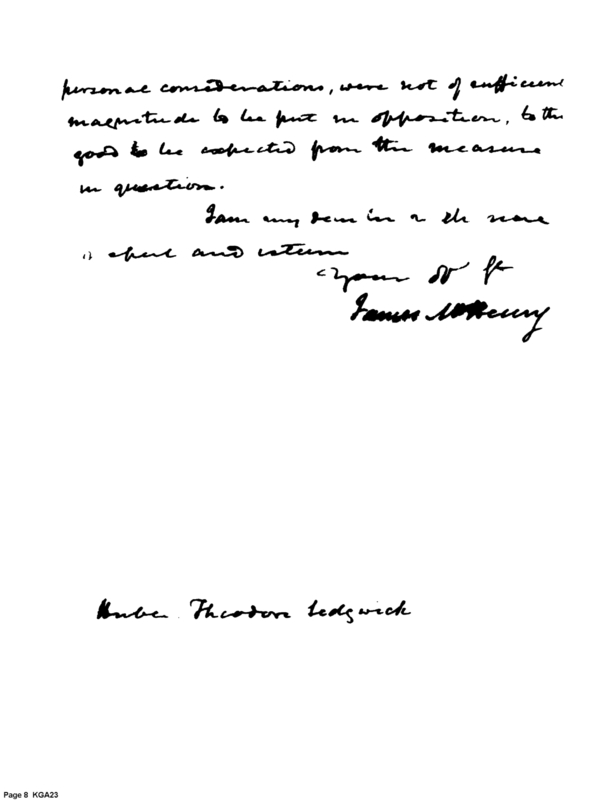 personal considerations, were not of sufficient
magnitude to be put in opposition, to the
good to be expected from the measure
in question.
I am my dear sir
and esteem
Your
James McHenry
Theodore Sedgwick
Page 8 KGA23